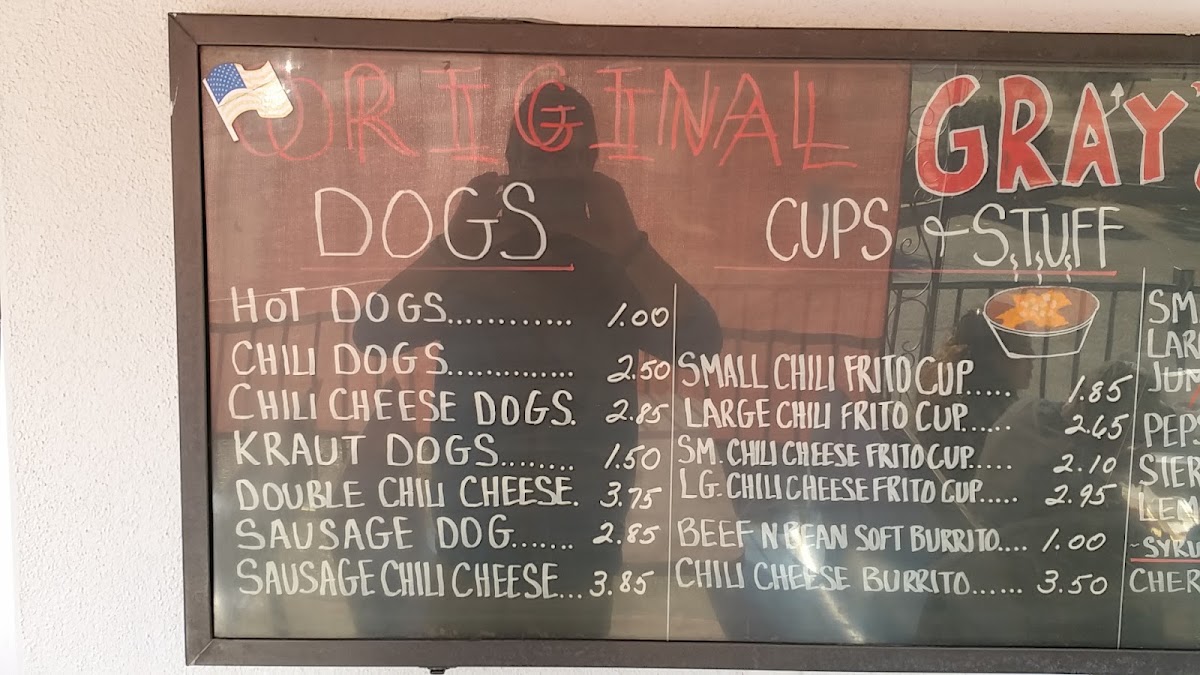 ORIGINAL GRAY'S
DOGS
HOT DOGS............ 1.00
CHILI DOGS............. 2.50
CHILI CHEESE DOGS. 2.85
KRAUT DOGS........ 1.50
DOUBLE CHILI CHEESE. 3.75
SAUSAGE DOG....... 2.85
SAUSAGE CHILI CHEESE... 3.85
CUPS & STUFF
SMALL CHILI FRITO CUP...... 1.85
LARGE CHILI FRITO CUP...... 2.65
SM. CHILI CHEESE FRITO CUP..... 2.10
LG. CHILI CHEESE FRITO CUP..... 2.95
BEEF N BEAN SOFT BURRITO.... 1.00
CHILI CHEESE BURRITO...... 3.50
SM
LAR
JUM
PEPS
SIER
LEM
-SYRU
CHER